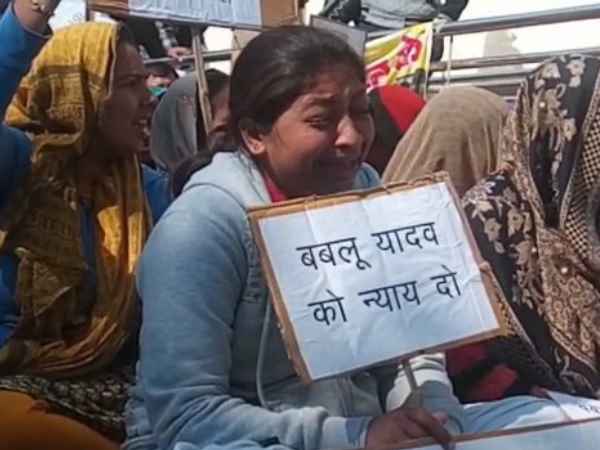 बबलू यादव
को न्याय दो